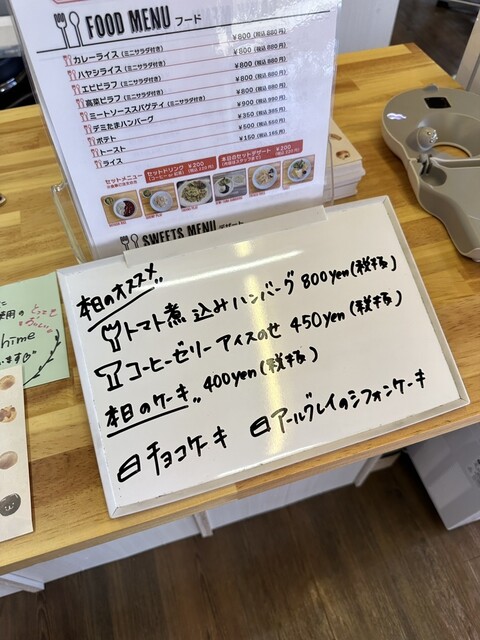 FOOD MENU フード
カレーライス(ミニサラダ付き) ¥800(税込 880円)
ハヤシライス(ミニサラダ付き) ¥800(税込 880円)
エビピラフ(ミニサラダ付き) ¥800(税込 880円)
高菜ピラフ(ミニサラダ付き) ¥800(税込 880円)
ミートソーススパゲティ(ミニサラダ付き) ¥800(税込 880円)
デミたまハンバーグ ¥900(税込 990円)
ポテト ¥350(税込 385円)
トースト ¥500(税込 550円)
ライス ¥150(税込 165円)
セットメニュー
セットドリンク ¥200
本日のセットデザート ¥200
SWEETS MENU デザート
本日のオススメ
トマト煮込みハンバーグ 800yen(税抜)
コーヒーゼリー アイスのせ 450yen(税抜)
本日のケーキ 400yen(税抜)
チョコケーキ アールグレイのシフォンケーキ
hime